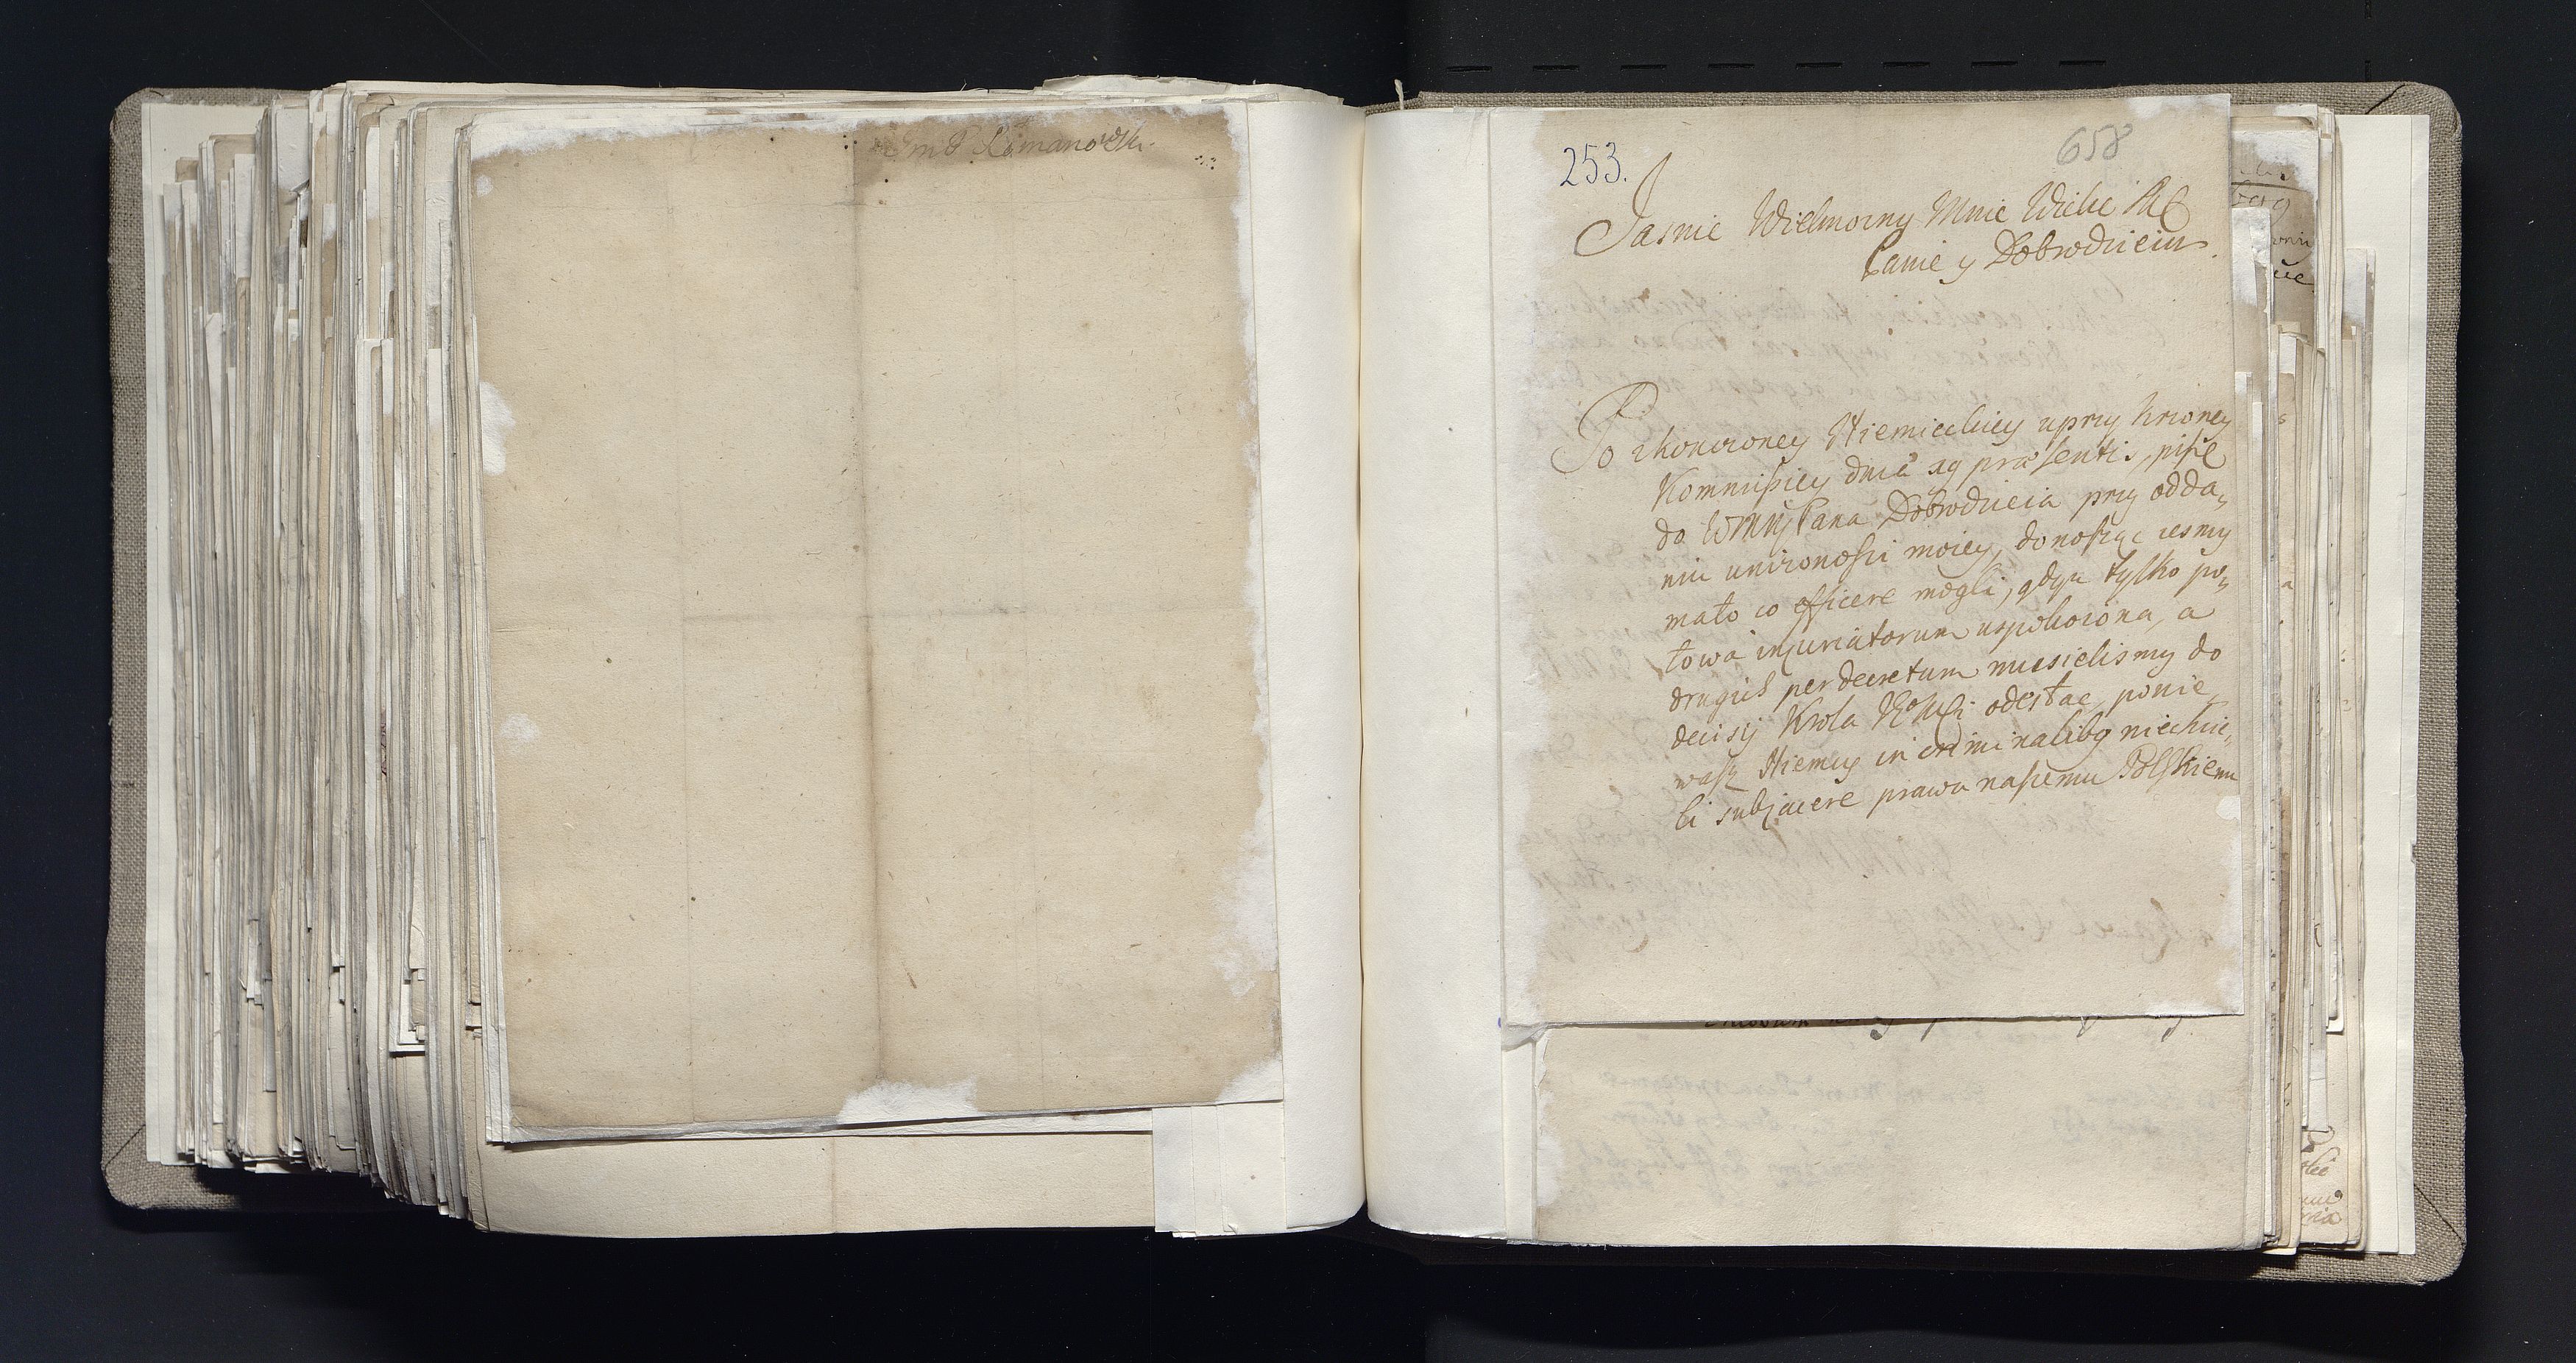 Jmć P Romanowski
253.
658
Jasnie Wielmozny Mnie Wielce Mć
Panie y Dobrodzieiu
Po zkonczoney Niemieckiey uprzykrzoney
Kommissiey dnia 19 præsentis, piszę
do WMMPana Dobrodzieia przy odda,,
niu unizonosci moiey, donosząc ześmy
mało co efficere mogli, gdyz tylko po,,
łowa injuriatorum uspokoiona, a
drugich per decretum musielismy do
decisij Krola JoMci odesłac, ponie
wasz Niemcy in criminalibq niechcie,,
li subjacere prawu naszemu Polskiemu